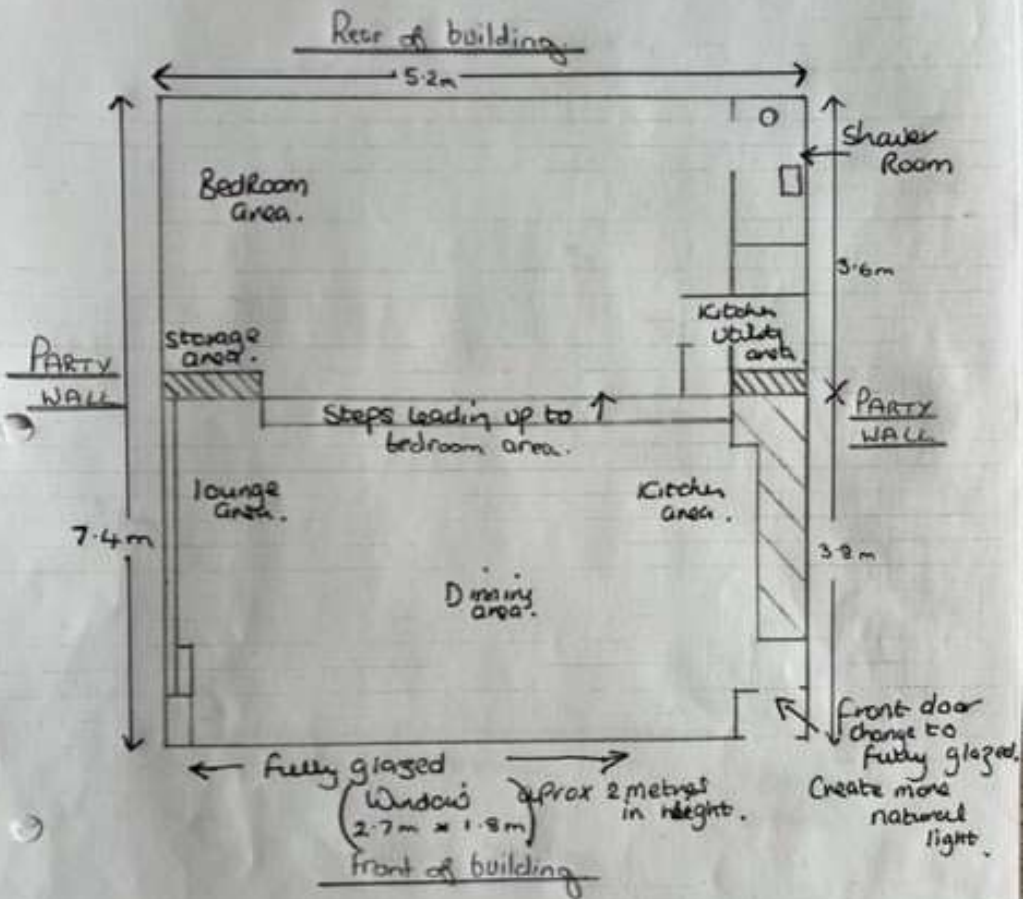 Rear of building.
5.2m
Shower
Room
BedRoom
area.
3.6m
Kitchen
Utility
area
Storage
area.
PARTY
WALL
Steps leadin up to
bedroom area.
PARTY
WALL
lounge
area.
Kitchen
area.
7.4m
3.8m
Dinning
area.
Front door
change to
fully glazed.
Create more
natural
light.
fully glazed
(Window
2.7m x 1.8m)
aprox 2 metres
in height.
Front of building